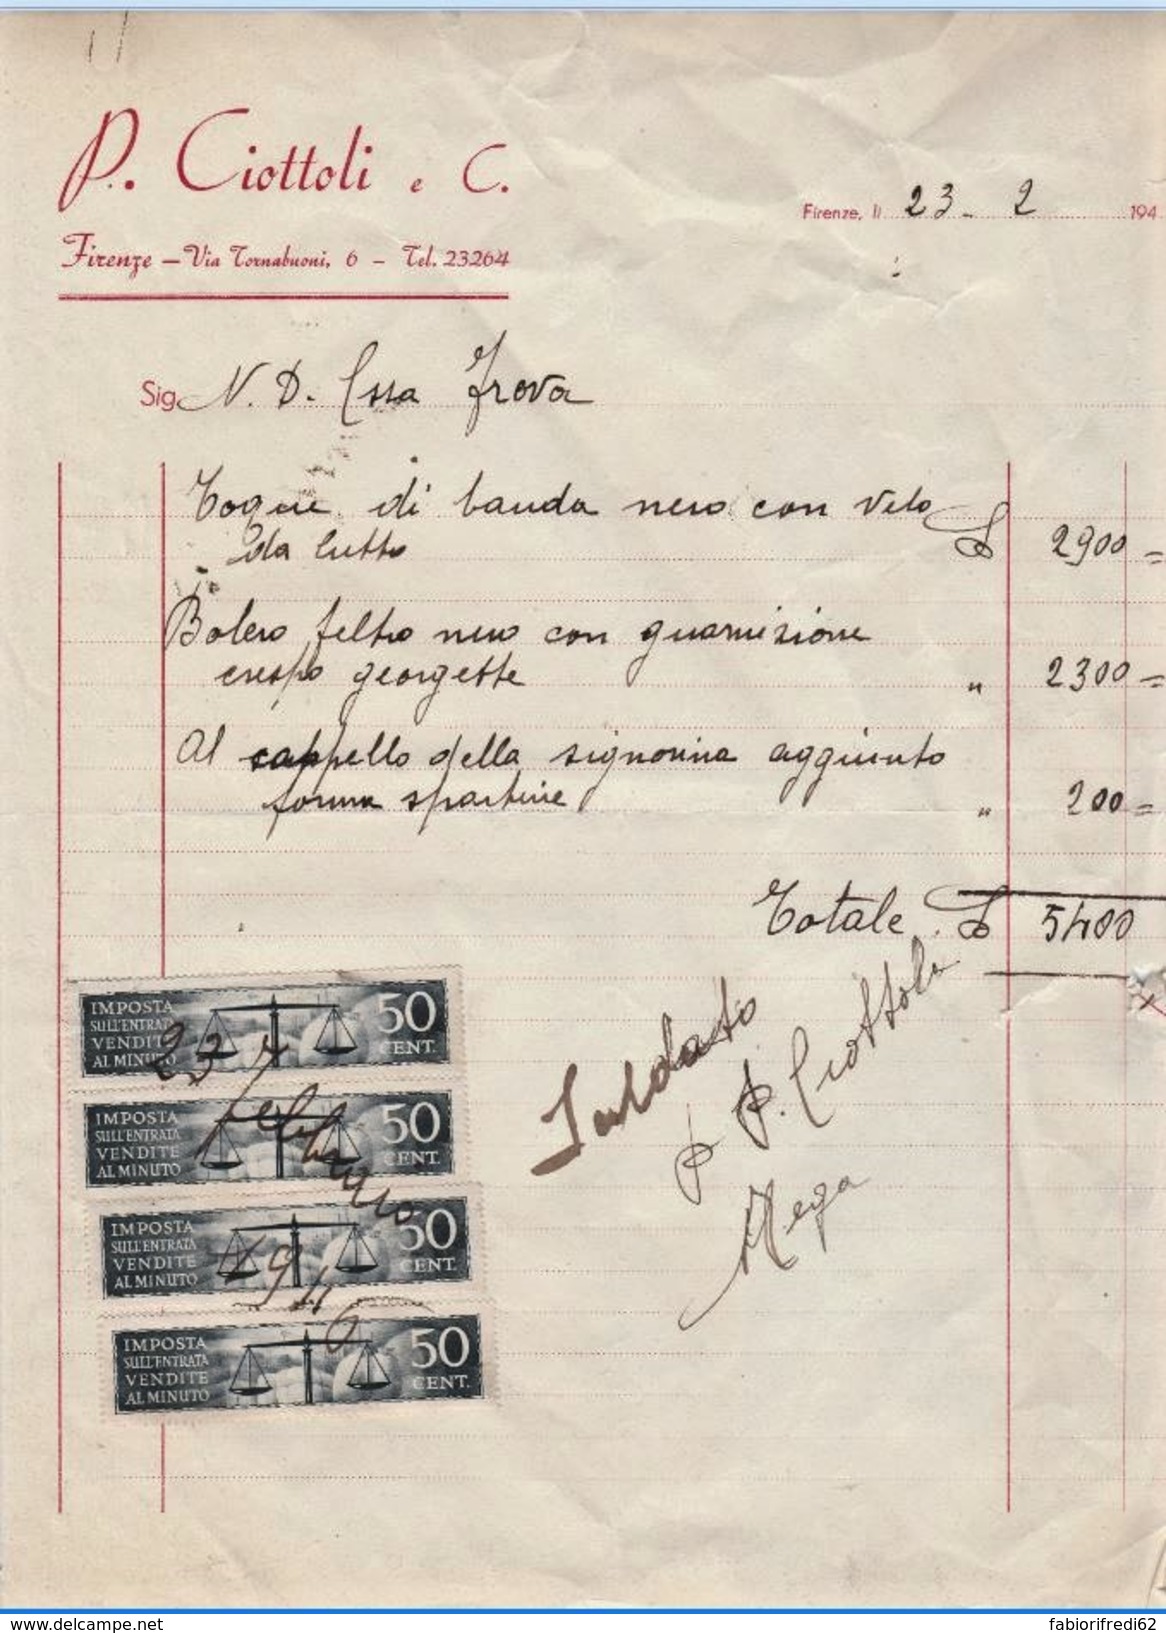 P. Ciottoli e C.
Firenze — Via Tornabuoni, 6 — Tel. 23264
Firenze, li 23 - 2 194
Sig. N. D. C.ssa Trova
Toque di banda nero con velo
da lutto £ 2900 =
Bolero feltro nero con guarnizione
crespo georgette " 2300 =
Al cappello della signorina aggiunto
forma sparterie " 200 =
Totale £ 5400
Saldato
p P. Ciottoli
IMPOSTA
SULL'ENTRATA
VENDITE
AL MINUTO
50
CENT.
IMPOSTA
SULL'ENTRATA
VENDITE
AL MINUTO
50
CENT.
IMPOSTA
SULL'ENTRATA
VENDITE
AL MINUTO
50
CENT.
IMPOSTA
SULL'ENTRATA
VENDITE
AL MINUTO
50
CENT.
23
febbraio
1946
www.delcampe.net
fabiorifredi62